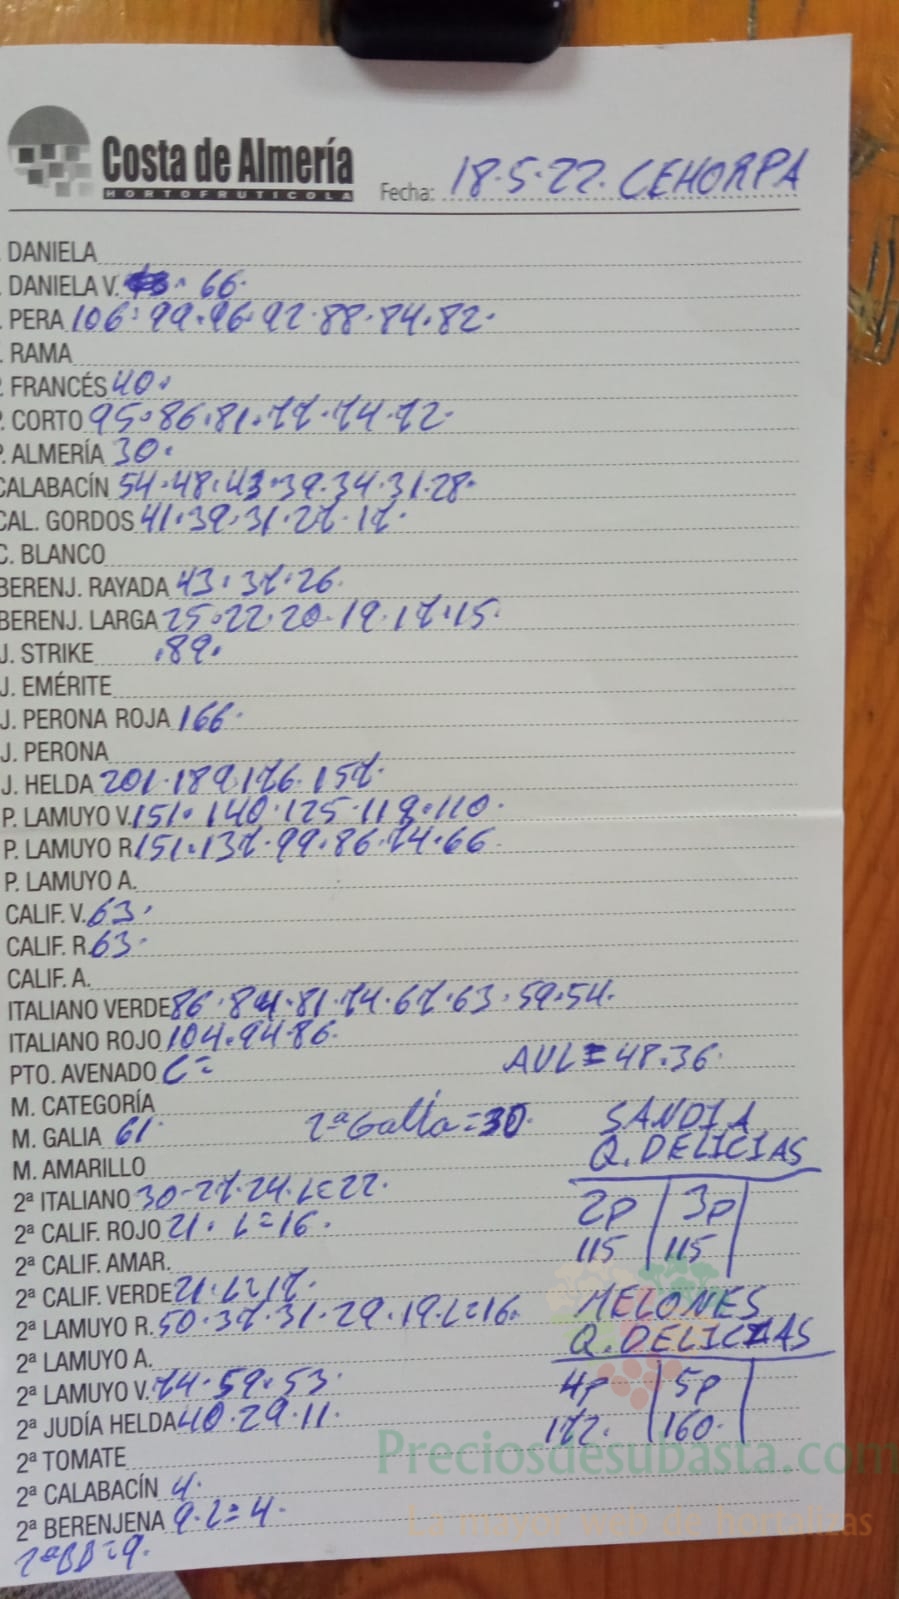 Costa de Almería
HORTOFRUTICOLA
Fecha: 18.5.22. CEHORPA
. DANIELA
. DANIELA V. 66.
. PERA 106.99.96.92.88.84.82.
. RAMA
. FRANCÉS 40.
. CORTO 95.86.81.77.74.72.
. ALMERÍA 30.
CALABACÍN 54.48.43.39.34.31.28.
CAL. GORDOS 41.39.31.27.17.
C. BLANCO
BERENJ. RAYADA 43.37.26.
BERENJ. LARGA 25.22.20.19.17.15.
J. STRIKE .89.
J. EMÉRITE
J. PERONA ROJA 166.
J. PERONA
J. HELDA 201.189.176.157.
P. LAMUYO V. 151.140.125.118.110.
P. LAMUYO R. 151.137.99.86.74.66
P. LAMUYO A.
CALIF. V. 63.
CALIF. R. 63.
CALIF. A.
ITALIANO VERDE 86.84.81.74.67.63.59.54.
ITALIANO ROJO 104.94.86.
PTO. AVENADO C=
AUL=48.36.
M. CATEGORÍA
M. GALIA 61.
2ª Galia=30.
M. AMARILLO
2ª ITALIANO 30-27.24.L=22.
2ª CALIF. ROJO 21. L=16.
2ª CALIF. AMAR.
2ª CALIF. VERDE 21.L=17.
2ª LAMUYO R. 50.37.31.29.19.L=16.
2ª LAMUYO A.
2ª LAMUYO V. 74.59.53.
2ª JUDÍA HELDA 40.29.11.
2ª TOMATE
2ª CALABACÍN 4.
2ª BERENJENA 9.L=4.
2ªBB=9.
SANDIA
Q.DELICIAS
2P 3P
115 115
MELONES
Q.DELICIAS
4P 5P
172. 160.
Preciosdesubasta.com
La mayor web de hortalizas